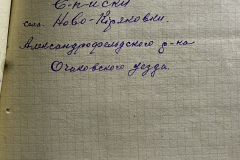 Списки
села Ново-Кряновки.
Александродольдского р-на
Очаковского уезда.